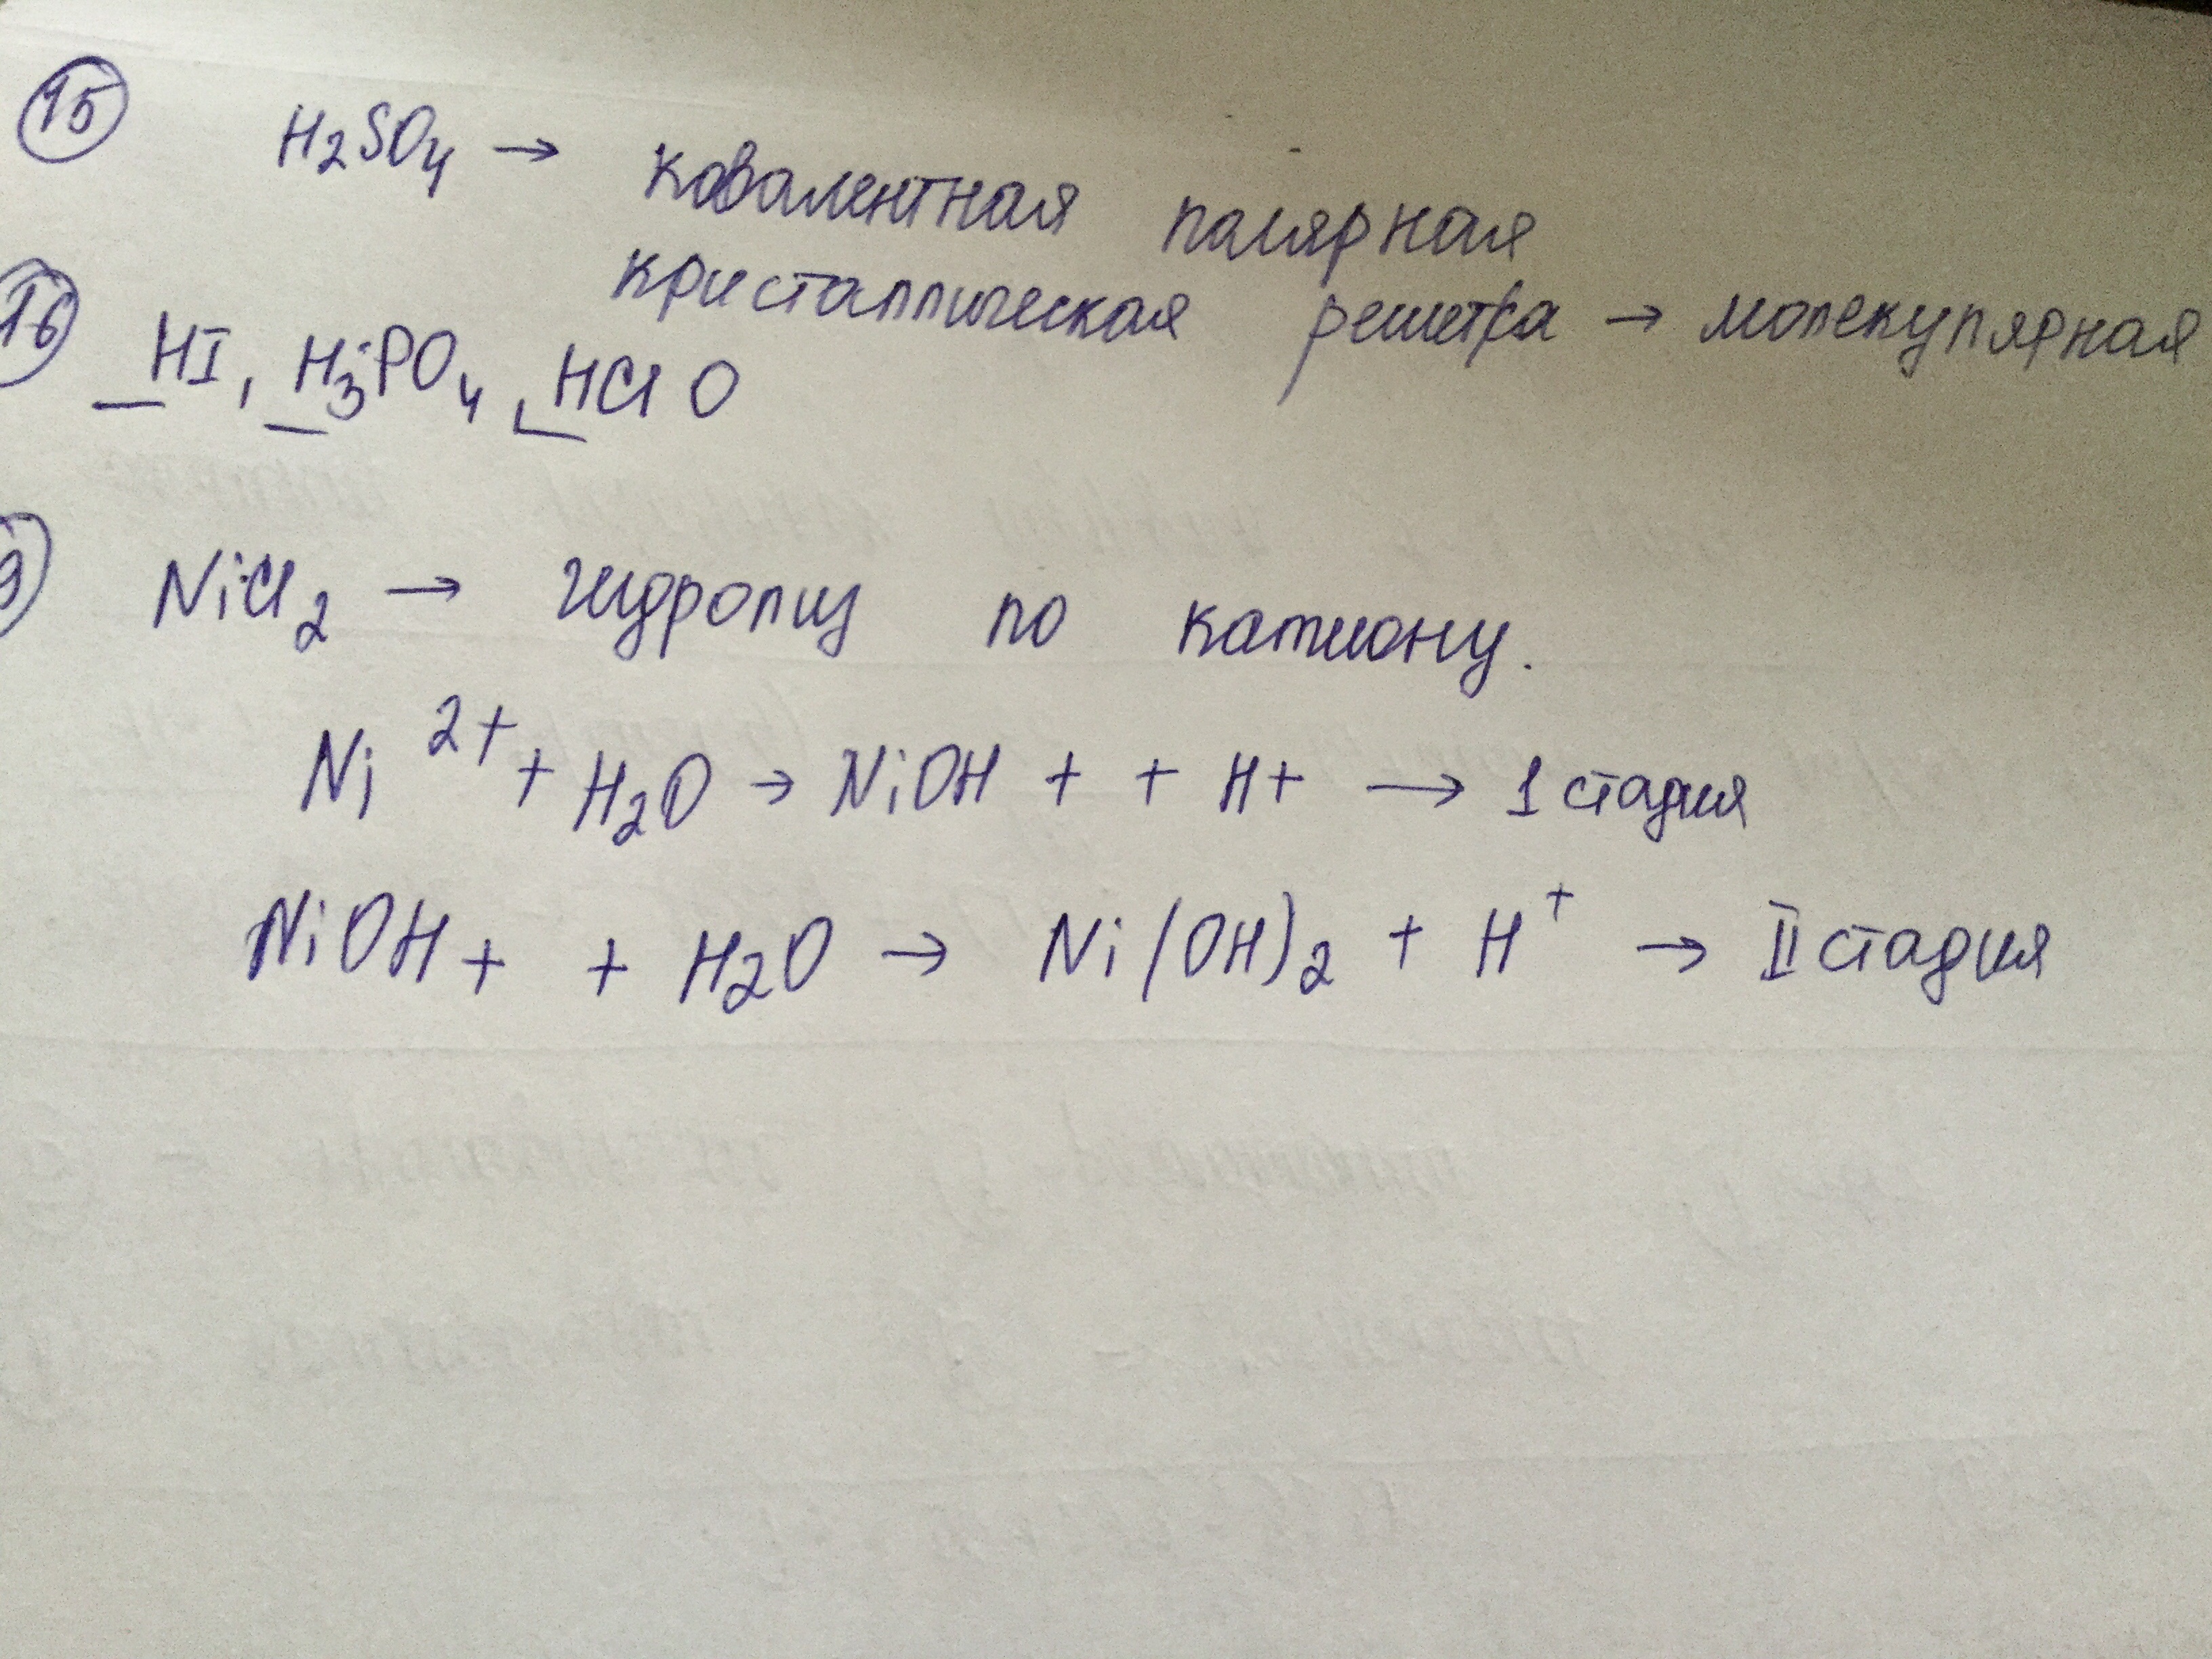 15 H2SO4 → ковалентная палярная
кристаллическая решетка → молекулярная
16 HI, H3PO4, HClO
9) NiCl2 → гидролиз по катиону.
Ni 2+ + H2O → NiOH + + H+ → 1 стадия
NiOH+ + H2O → Ni(OH)2 + H+ → II стадия